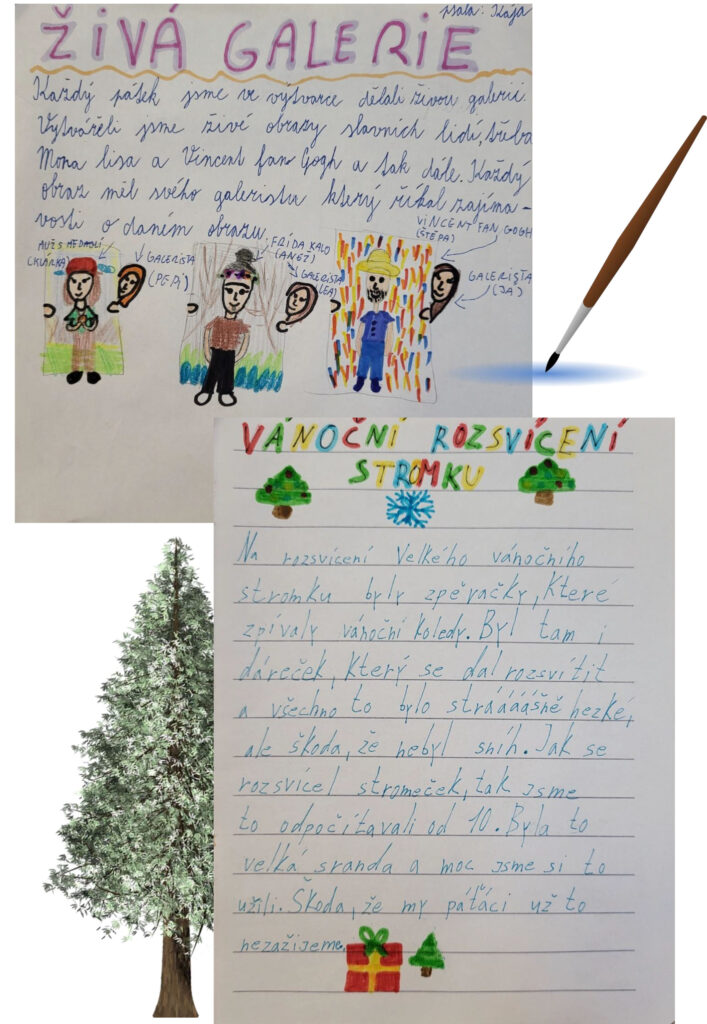 psala: Kája
ŽIVÁ GALERIE
Každý pátek jsme ve výtvarce dělali živou galerii.
Vytvářeli jsme živé obrazy slavních lidí, třeba
Mona lisa a Vincent fan Gogh a tak dále. Každý
obraz měl svého galeristu který říkal zajíma-
vosti o daném obrazu.
(KLÁRKA)
GALERISTA
(PEPA)
FRÍDA KALO
(ANEŽ)
GALERISTA
(LEA)
VINCENT FAN GOGH
(ŠTĚPA)
GALERISTA
(JA)
VÁNOČNÍ ROZSVÍCENÍ
STROMKU
Na rozsvícení Velkého vánočního
stromku byly zpěvačky, Které
zpívaly vánoční Koledy. Byl tam i
dáreček, Který se dal rozsvítit
a všechno to bylo stráááášně hezké,
ale škoda, že nebyl sníh. Jak se
rozsvícel stromeček, tak jsme
to odpočítavali od 10. Byla to
velká sranda a moc jsme si to
užili. Škoda, že my páťáci už to
nezažijeme.